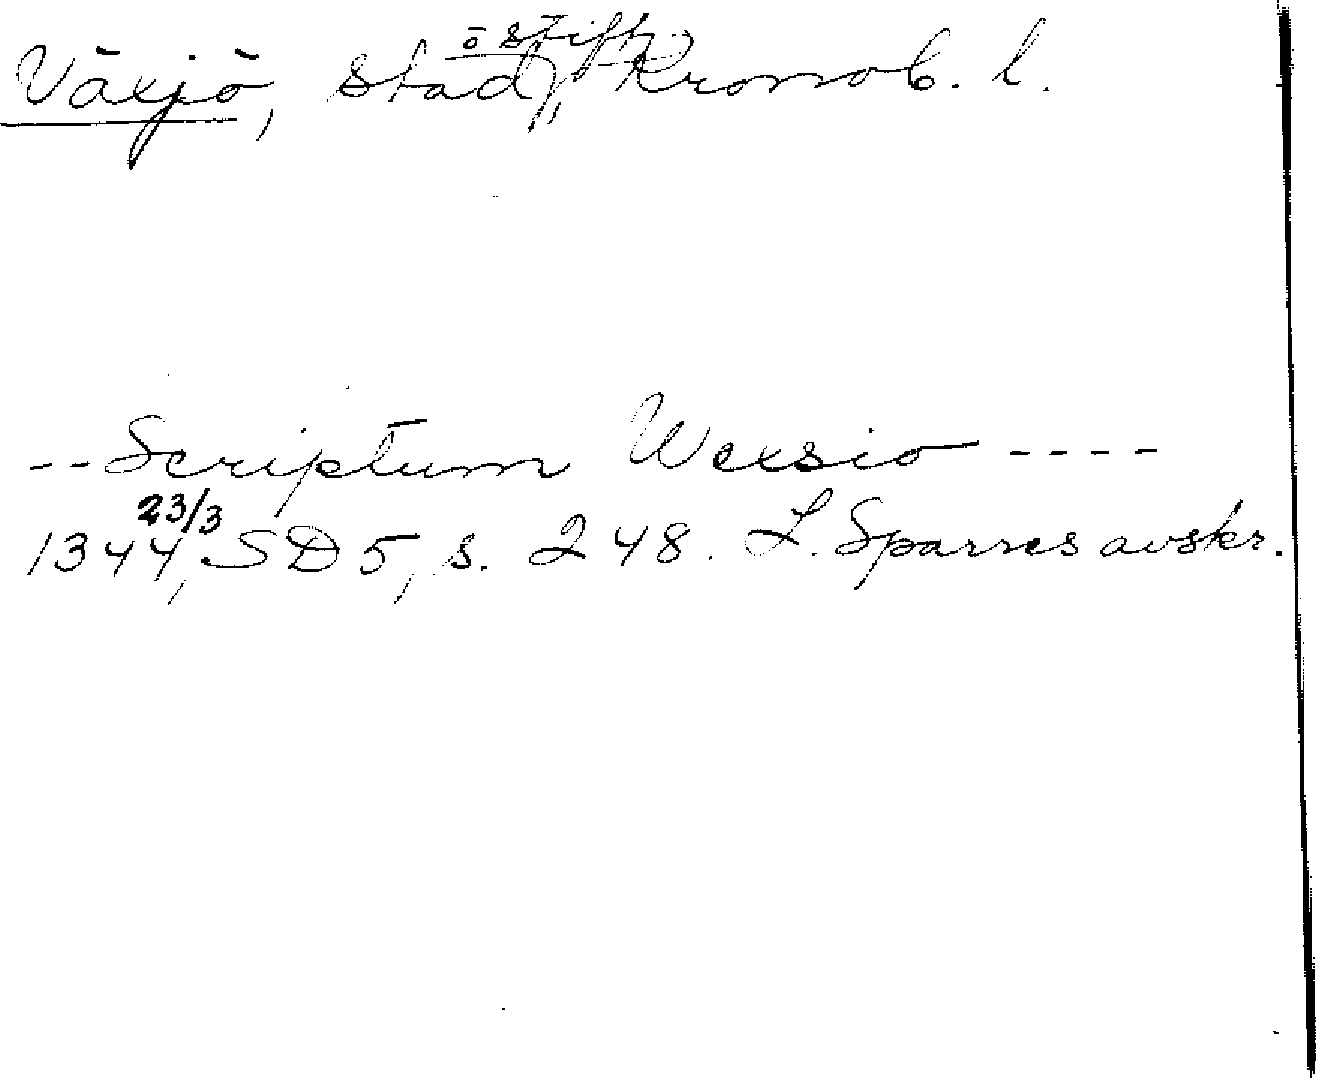 Växjö, stad, Kronob. l.
o stift
--Scriptum Wexsio ----
23/3
1344, SD 5, s. 248. L. Sparres avskr.